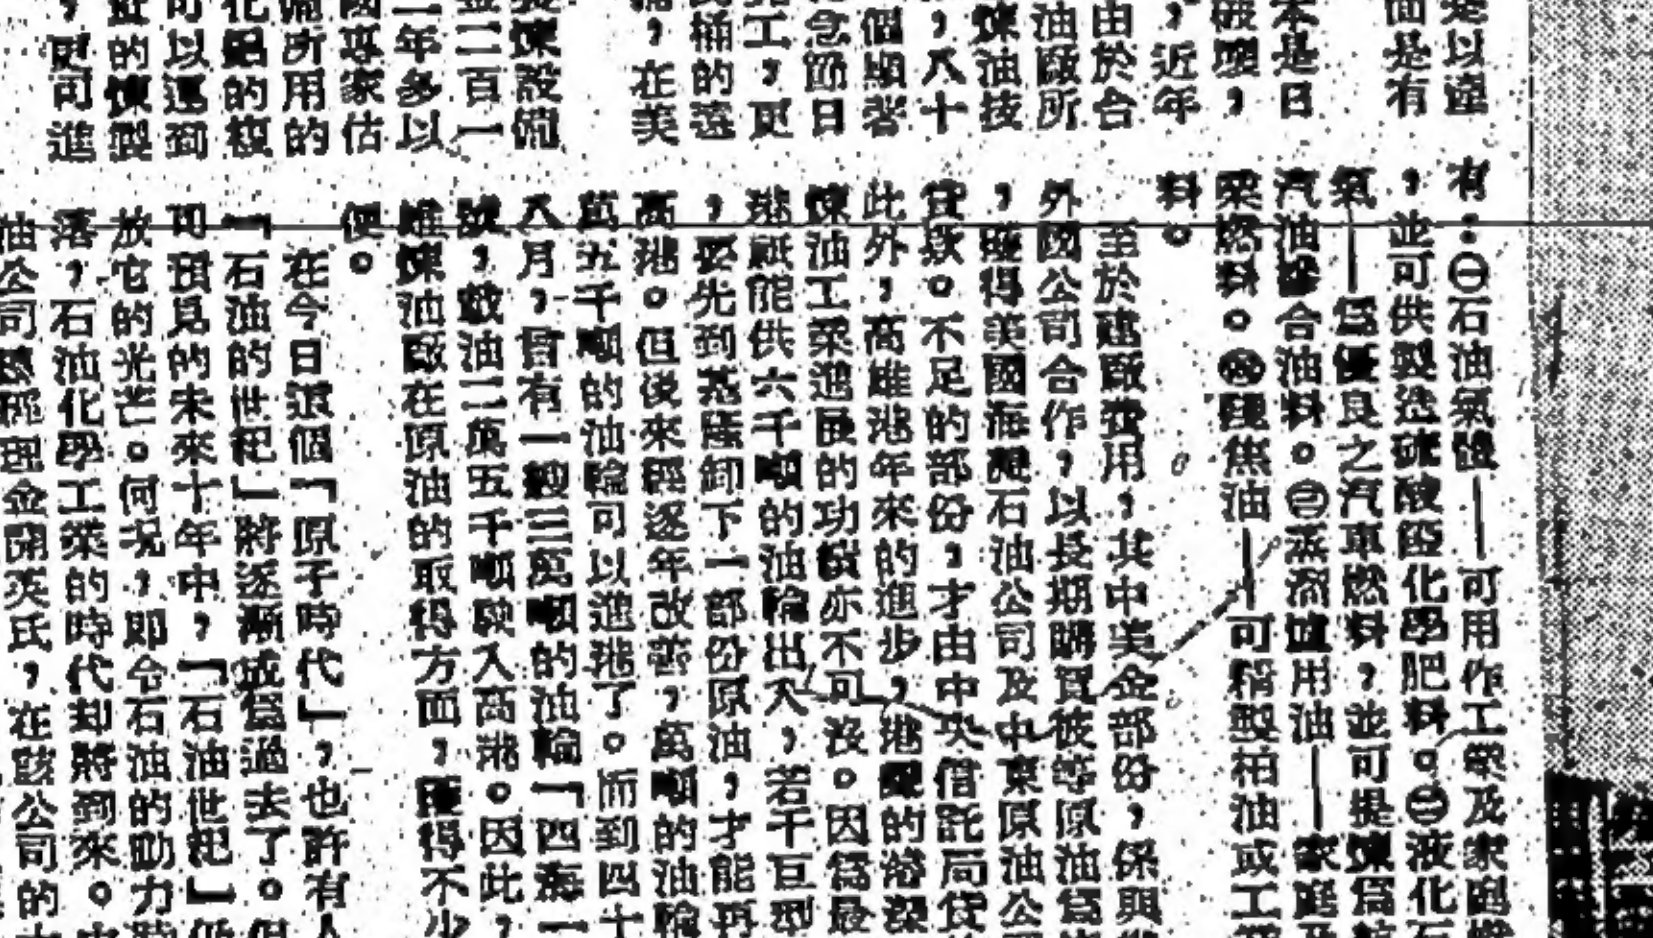 以遠
面是有
本是日
破壞，
，近年
由於合
油廠所
煉油技
，八十
個顯著
念節日
工，更
桶的
，在美
煉設備
金二百一
一年多以
國專家估
備所用的
的
可以
的煉製
，更可進
有：㊀石油氣體——可用作工業及家庭
，並可供製造硫酸錏化學肥料。㊁液化石
氣——為優良之汽車燃料，並可提煉為
汽油摻合油料。㊂蒸餾爐用油——家庭及
業燃料。㊃殘焦油——可精製柏油或工
料。
至於建廠費用，其中美金部份，係與
外國公司合作，以長期購買彼等原油為
，獲得美國海灣石油公司及中東原油公
貸款。不足的部份，才由中央信託局貸
此外，高雄港年來的進步，港灣的濬深
煉油工業進展的功績亦不可沒。因為最
港祇能供六千噸的油輪出入，若干巨型
，要先到基隆卸下一部份原油，才能再
高港。但後來經逐年改善，萬噸的油輪
萬五千噸的油輪可以進港了。而到四十
八月，曾有一艘三萬噸的油輪「四海一
號，載油二萬五千噸駛入高港。因此，
雄煉油廠在原油的取得方面，獲得不少
便。
在今日這個「原子時代」，也許有人
「石油的世紀」將逐漸成為過去了。但
可預見的未來十年中，「石油世紀」仍
放它的光芒。何況，即令石油的動力
落，石油化學工業的時代却將到來。
油公司總經理金開英氏，在該公司的